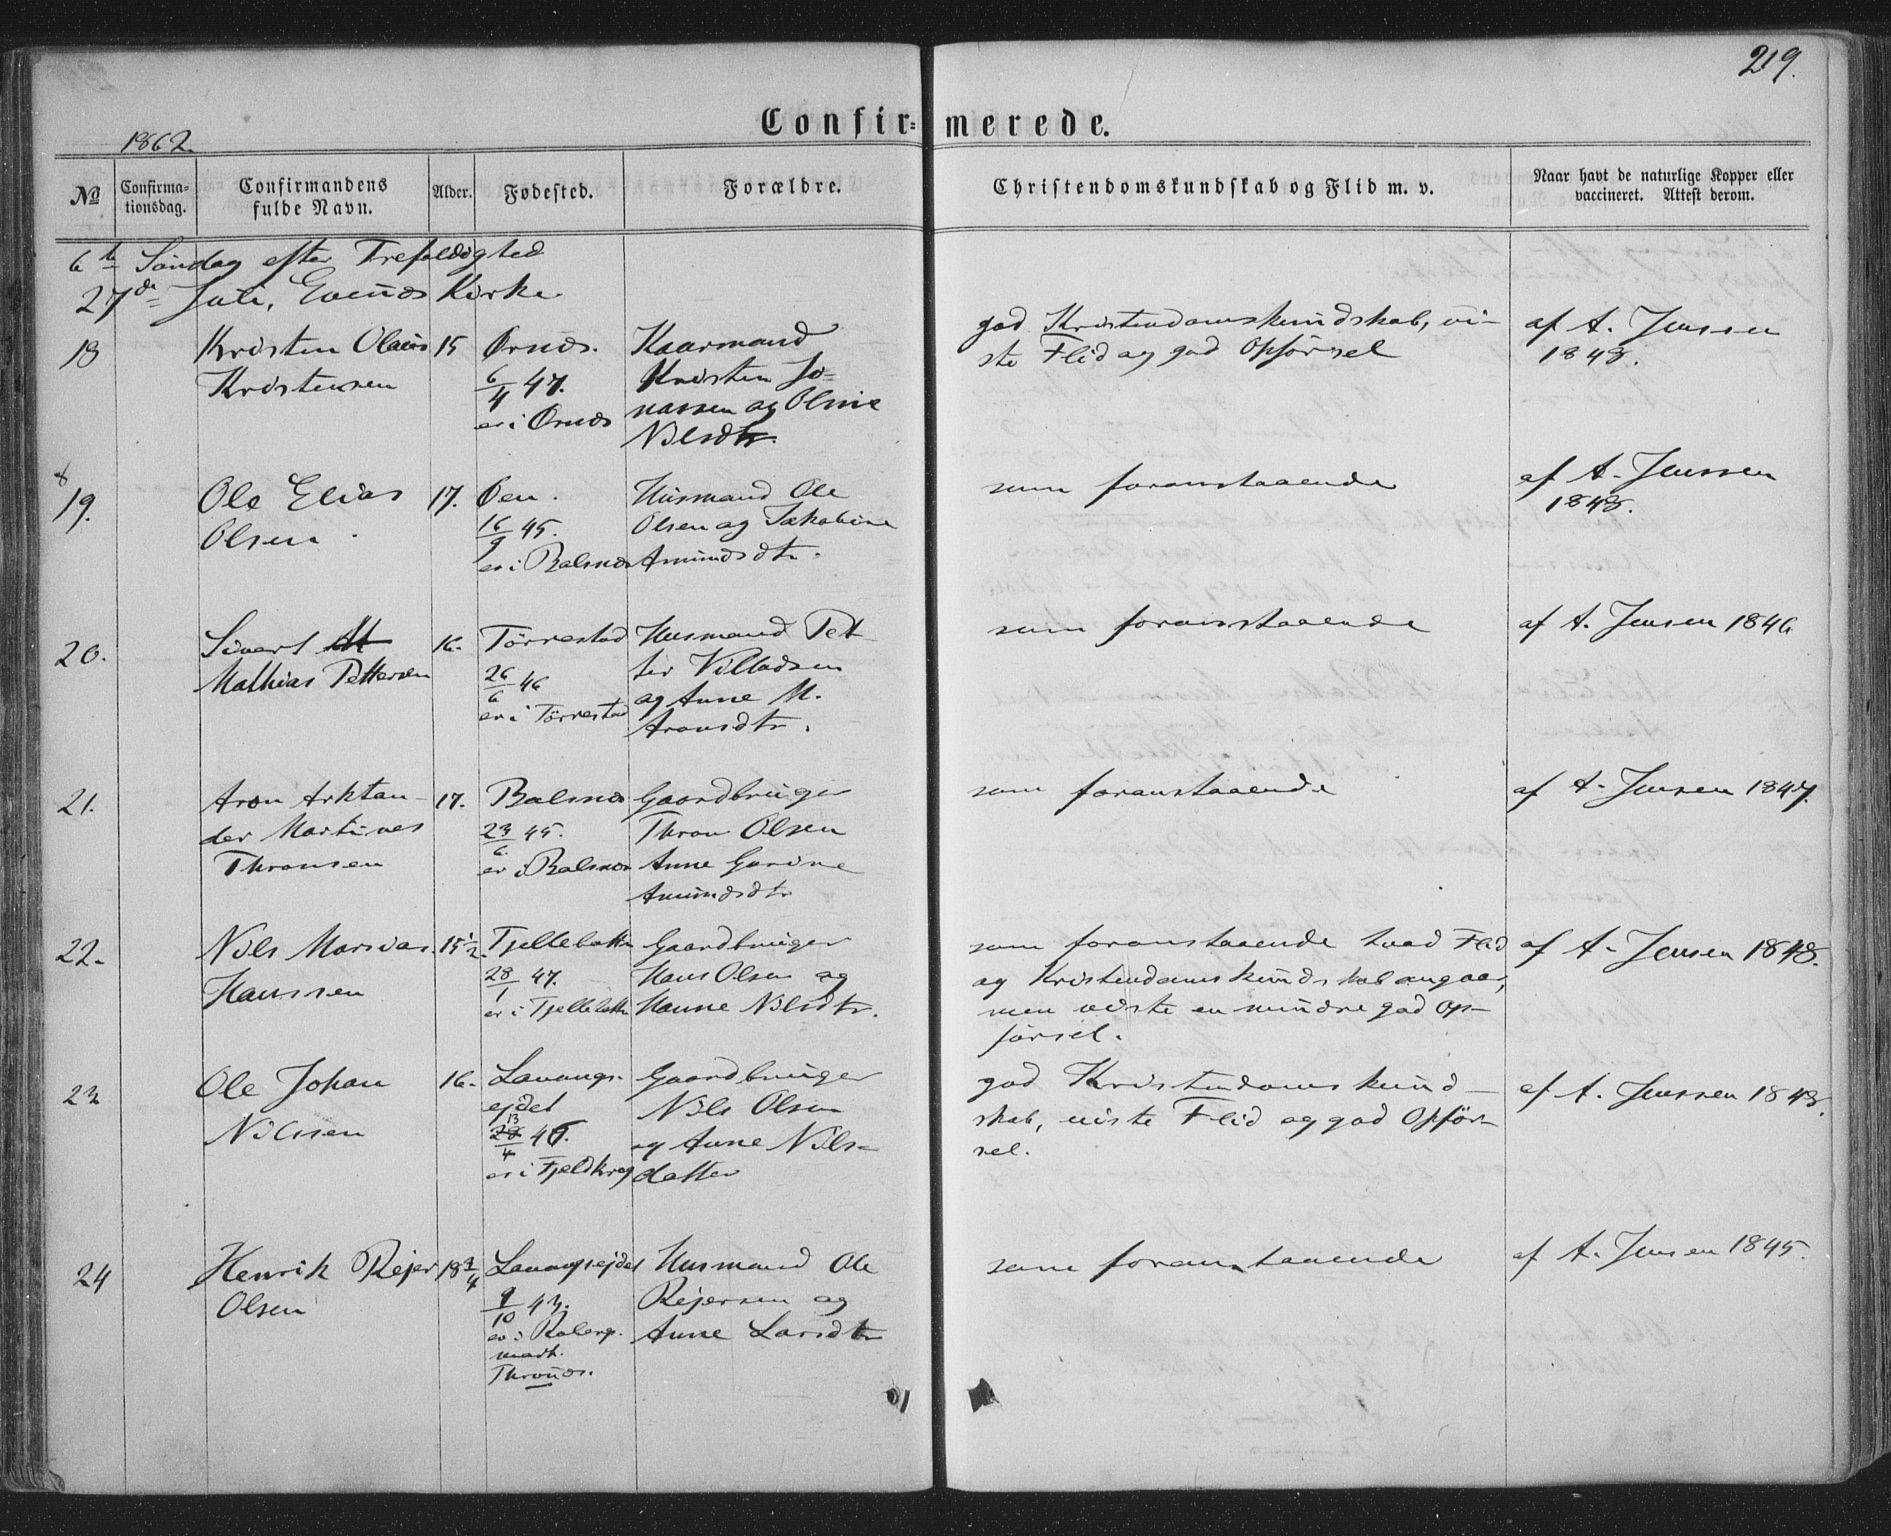 219.
Confir= merede.
1862.
No
Confirma-
tionsdag.
Confirmandens
fulde Navn.
Alder.
Fødested.
Forældre.
Christendomskundskab og Flid m. v.
Naar havt de naturlige Kopper eller
vaccineret. Attest derom.
6te Søndag efter Trefoldigted
27de Juli, Evenæs Kirke.
18
Kristen Olaus
Kristensen
15
Ørnæs.
6/4 47.
er i Ørnæs
Kaarmand
Kristen Jo-
nassen og Oline
Nilsdtr.
god Kristendomskundskab, vi-
ste Flid og god Opførsel
af A. Jenssen
1848.
19.
Ole Elias
Olsen.
17.
Øen.
16/9 45.
er i Balsnæs
Husmand Ole
Olsen og Jakobine
Amundsdtr.
som foranstaaende
af A. Jenssen
1848.
20.
Sivert
Mathias Pettersen
16.
Tørrestad
26/6 46
er i Tørrestad
Husmand Pet-
ter Villadsen
og Anne M.
Aronsdtr.
som foranstaaende
af A. Jensen 1846
21.
Aron Arktan-
der Martines
Thronsen
17.
Balsnæs
23/6 45.
er i Balsnæs
Gaardbruger
Thron Olsen
Anne Gurine
Amundsdtr
som foranstaaende
af A. Jensen 1847.
22.
Nils Marsias
Hanssen
15 1/2.
Tjellebotn
28/1 47.
er i Tjellebotn
Gaardbruger
Hans Olsen og
Hanne Nilsdtr.
som foranstaaende hvad Flid
og Kristendomskundskab angaar,
men viste en mindre god Op-
førsel.
af A. Jensen 1848.
23
Ole Johan
Nilssen
16.
Lavangs-
ejdet
13/4 46.
er i Fjeldkrog
Gaardbruger
Nils Olsen
og Anne Nils-
datter
god Kristendomskund-
skab, viste Flid og god Opfør-
sel.
af A. Jenssen 1848.
24
Henrik Rejer
Olsen
18 3/4
Lavangsejdet
9/10 43.
er i
Thronæs.
Husmand Ole
Rejersen og
Anne Larsdtr
som foranstaaende
af A. Jensen 1845.